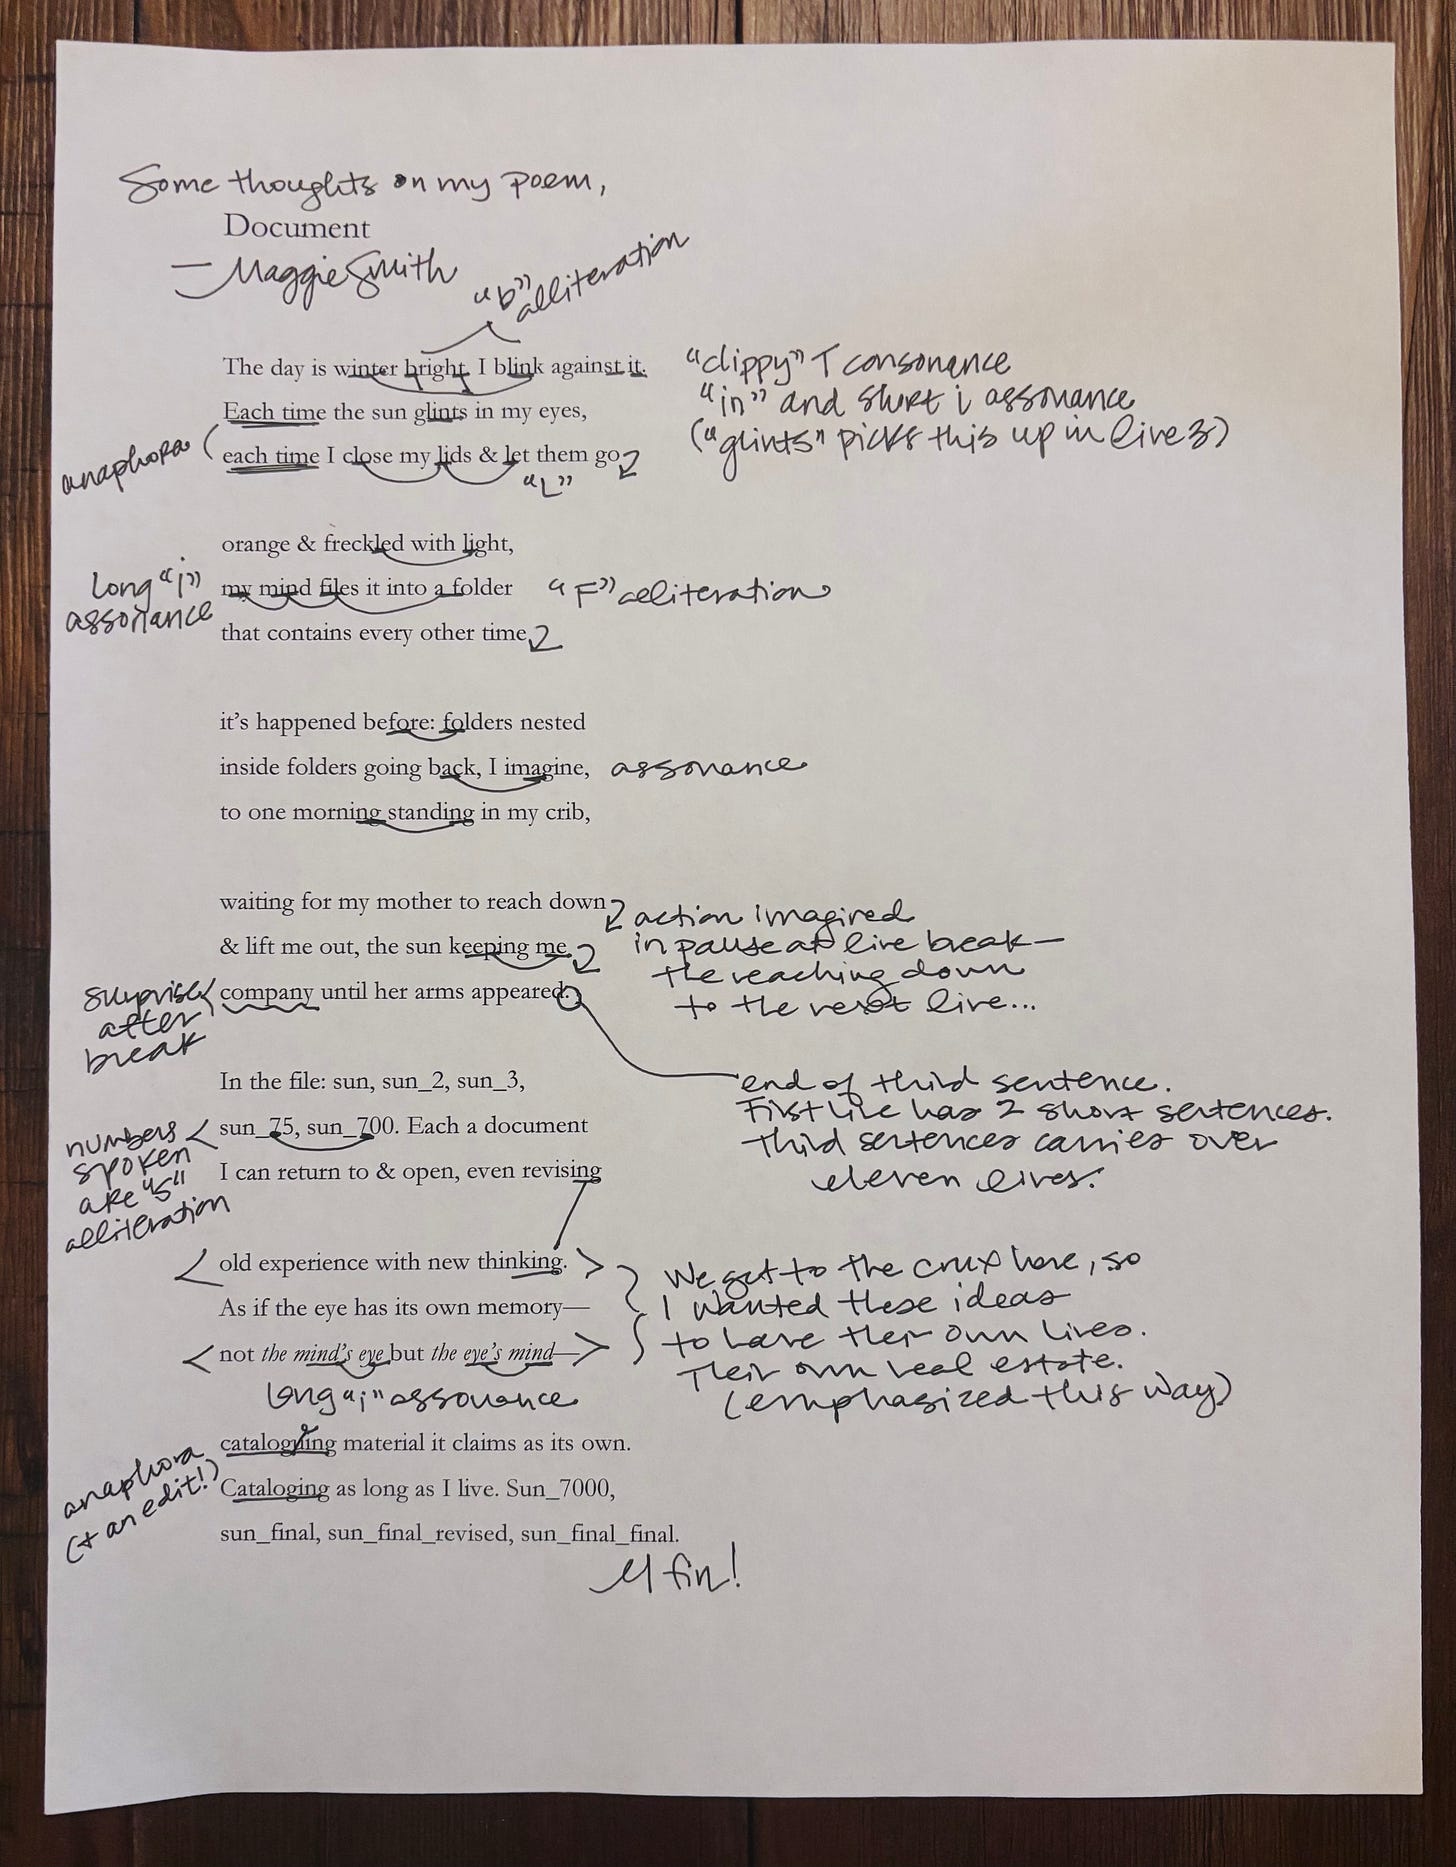 Some thoughts on my poem,
Document
—Maggie Smith
"b"
alliteration
The day is winter bright. I blink against it.
"clippy" T consonance
Each time the sun glints in my eyes,
"in" and short i assonance
anaphora
each time I close my lids & let them go
("glints" picks this up in line 3)
"L"
orange & freckled with light,
long "i"
assonance
my mind files it into a folder
"F" alliteration
that contains every other time
it's happened before: folders nested
inside folders going back, I imagine,
assonance
to one morning standing in my crib,
waiting for my mother to reach down
action imagined
& lift me out, the sun keeping me
in pause at line break—
the reaching down
to the next line...
surprise
after
break
company until her arms appeared.
end of third sentence.
First line has 2 short sentences.
Third sentences carries over
eleven lines.
In the file: sun, sun_2, sun_3,
numbers
spoken
are "s"
alliteration
sun_75, sun_700. Each a document
I can return to & open, even revising
old experience with new thinking.
As if the eye has its own memory—
not the mind's eye but the eye's mind—
We get to the crux here, so
I wanted these ideas
to have their own lines.
Their own real estate.
(emphasized this way)
long "i" assonance
anaphora
(+ an edit!)
cataloguing material it claims as its own.
Cataloging as long as I live. Sun_7000,
sun_final, sun_final_revised, sun_final_final.
fin!